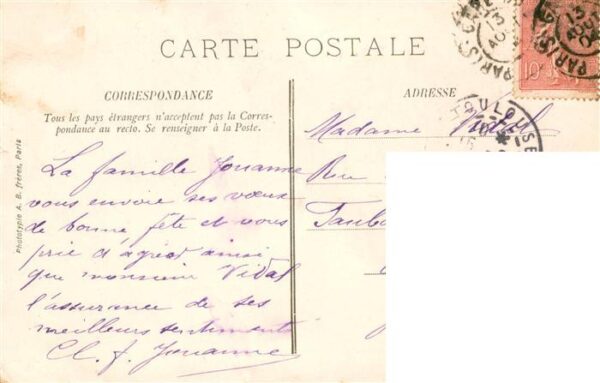 CARTE POSTALE
CORRESPONDANCE
Tous les pays étrangers n'acceptent pas la Corres-
pondance au recto. Se renseigner à la Poste.
La famille Jouanne
vous envoie ses vœux
de bonne fête et vous
prie d'agréer ainsi
que monsieur Vidal
l'assurance de ses
meilleurs sentiments
Cl. J. Jouanne
ADRESSE
Madame Vidal
Rue
Faubo
Phototypie A. B. frères, Paris
PARIS
13
PARIS
13
10c
TOULOUSE